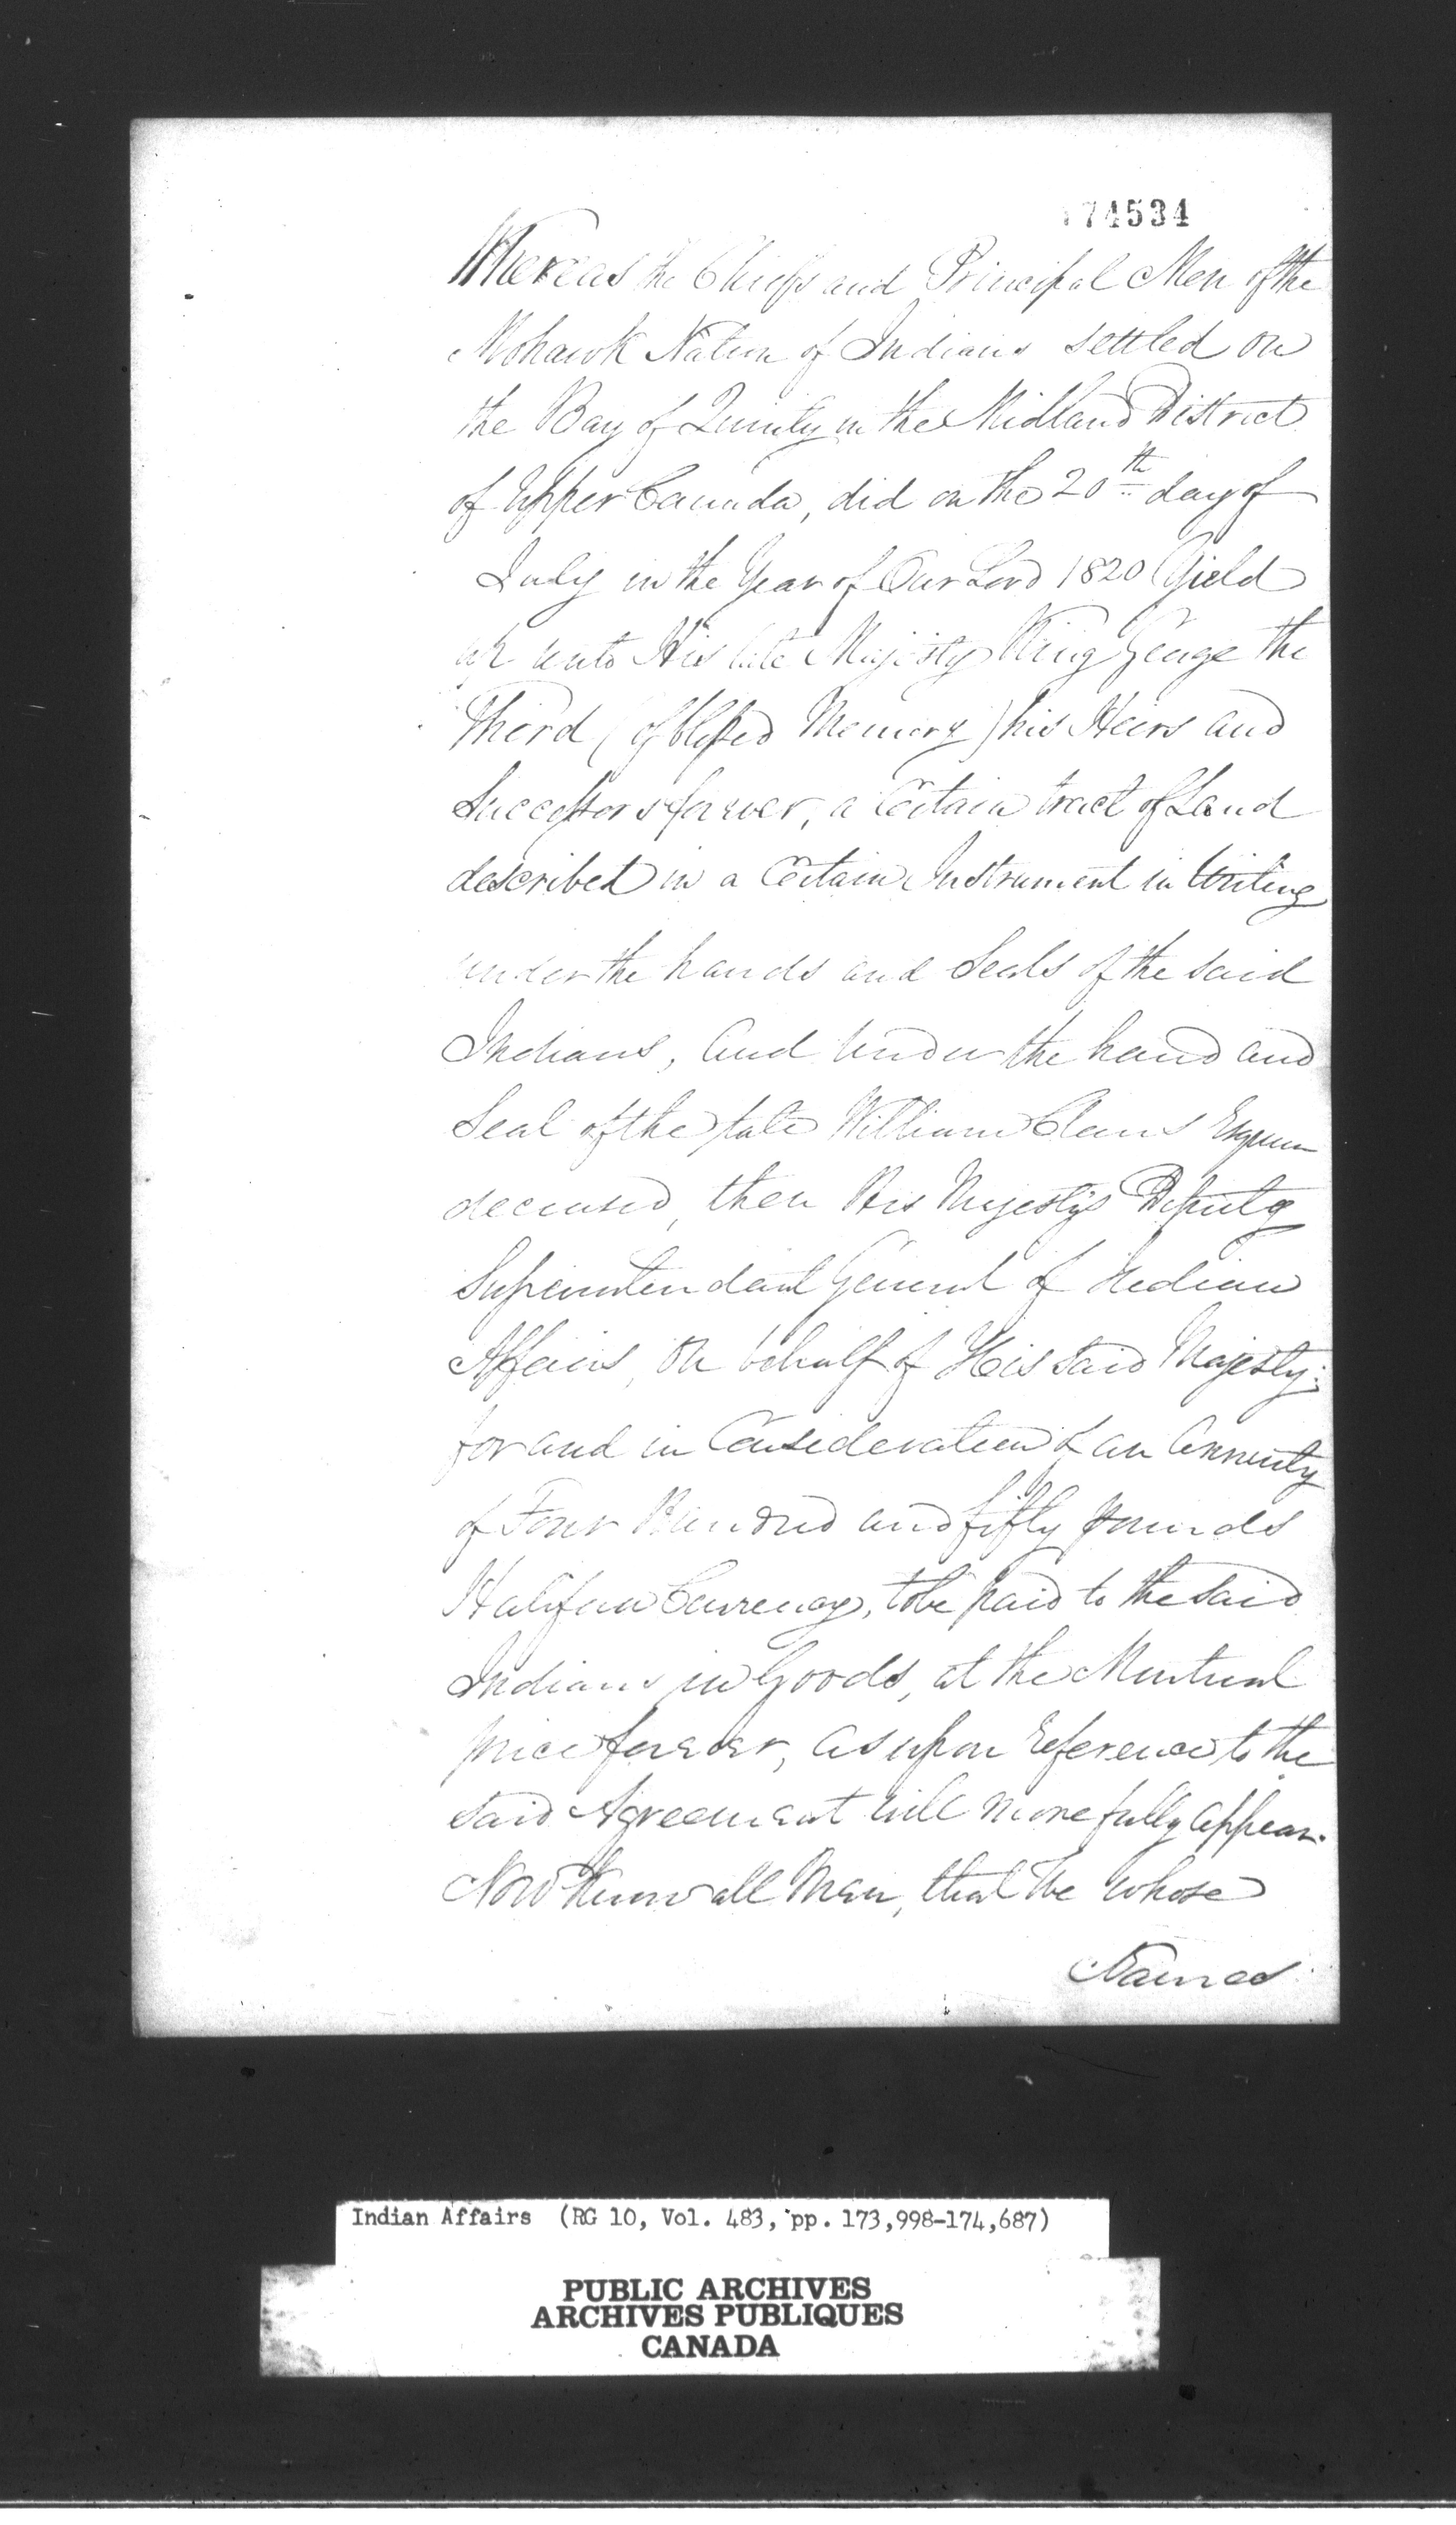 174534
Whereas the Chiefs and Principal Men of the
Mohawk Nation of Indians settled on
the Bay of Quinty in the Midland District
of Upper Canada, did on the 20th day of
July in the Year of Our Lord 1820 Yield
up unto His late Majesty King George the
Third (of blessed Memory) his Heirs and
Successors forever, a Certain tract of Land
described in a Certain Instrument in Writing
under the hands and Seals of the said
Indians, and under the hand and
Seal of the late William Claus Esquire
deceased, then His Majesty's Deputy
Superintendant General of Indian
Affairs, on behalf of His said Majesty;
for and in Consideration of an Annuity
of Four Hundred and fifty pounds
Halifax Currency, to be paid to the said
Indians in Goods, at the Montreal
price forever, as upon reference to the
said Agreement will more fully appear.
Now Know all Men, that We whose
Names
Indian Affairs (RG 10, Vol. 483, pp. 173,998-174,687)
PUBLIC ARCHIVES
ARCHIVES PUBLIQUES
CANADA